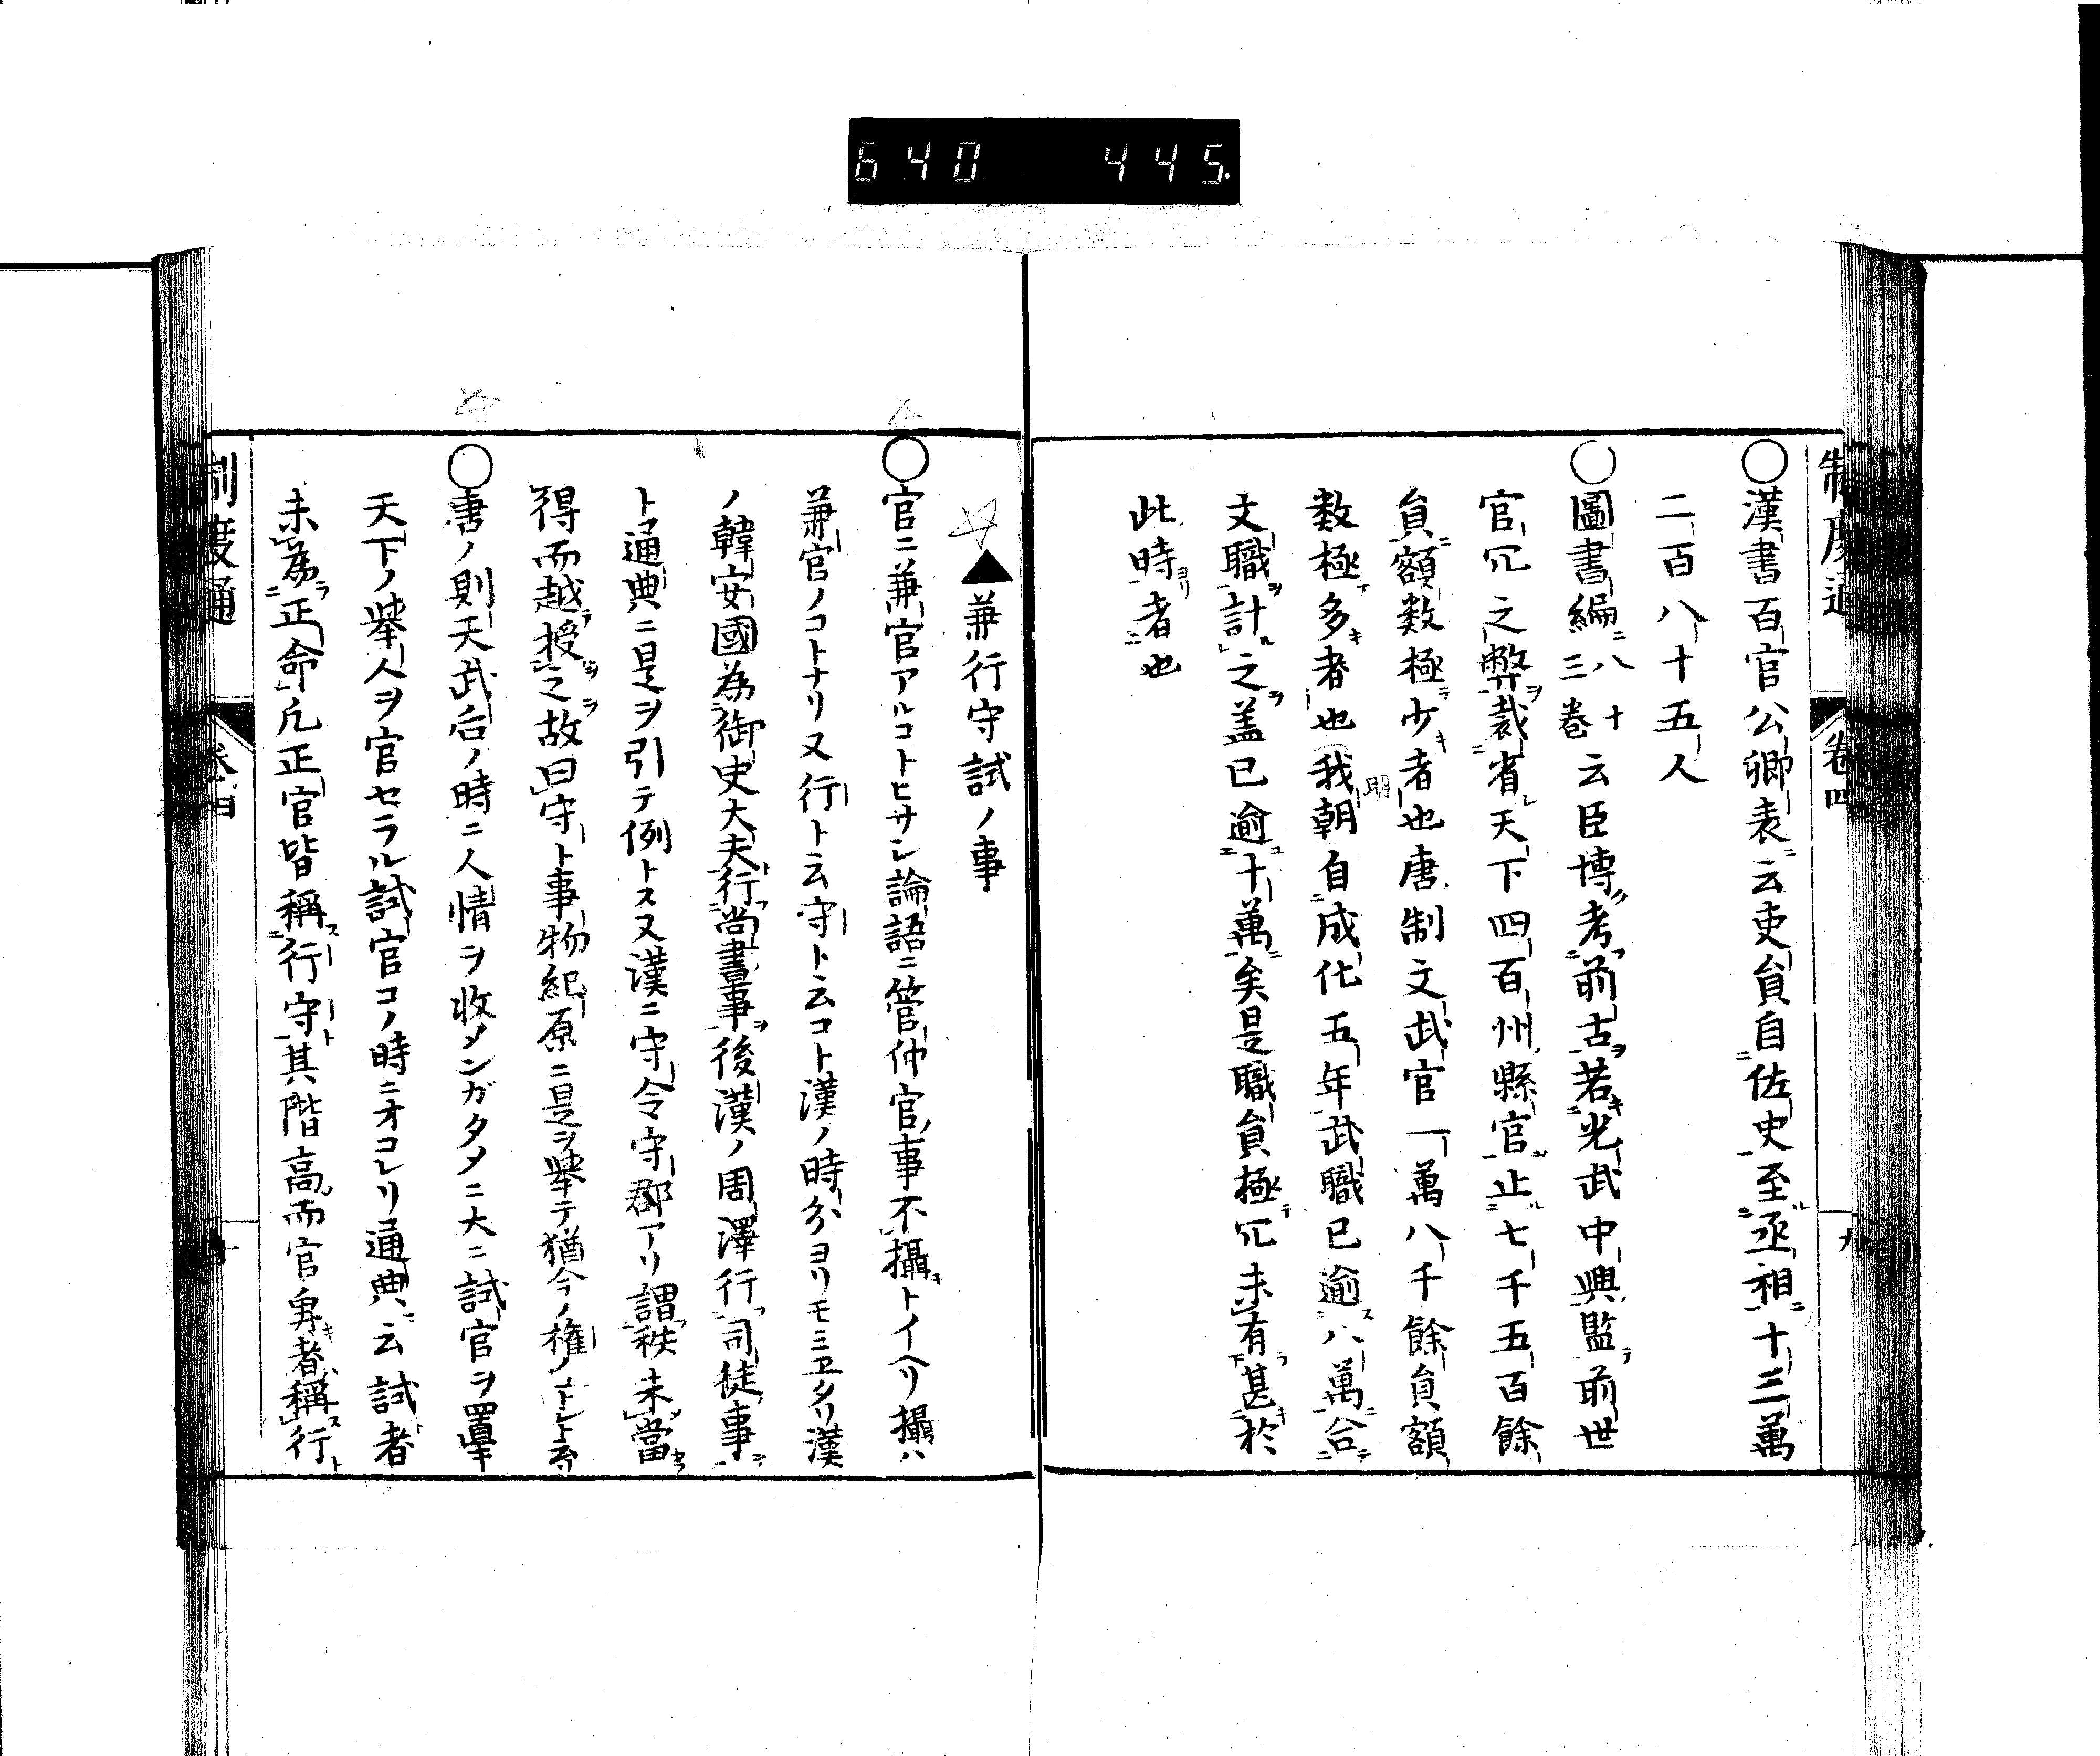 640 445.
制度通 卷四 九
○漢書百官公卿表云吏負自佐史至丞相十三萬
二百八十五人
○圖書編八十三卷云臣博考前古若光武中興監前世
官冗之弊裁省天下四百州縣官止七千五百餘
負額数極少者也唐制文武官一萬八千餘負額
数極多者也我朝自成化五年武職已逾八萬合
明
文職計之盖已逾十萬矣是職負極冗未有甚於
此時者也
▲兼行守試ノ事
○官ニ兼官アルコトヒサシ論語ニ管仲官事不攝トイヘリ攝ハ
兼官ノコトナリ又行ト云守ト云コト漢ノ時分ヨリモミヱタリ漢
ノ韓安國為御史大夫行尚書事後漢ノ周澤行司徒事
ト通典ニ是ヲ引テ例トス又漢ニ守令守郡アリ謂秩未當
得而越授之故曰守ト事物紀原ニ是ヲ舉テ猶今ノ権ノ
唐ノ則天武后ノ時ニ人情ヲ收メンガタメニ大ニ試官ヲ置
○天下ノ舉人ヲ官セラル試官コノ時ニオコレリ通典云試者
未為正命凡正官皆稱行守其階高而官卑者稱行
制度通 卷四